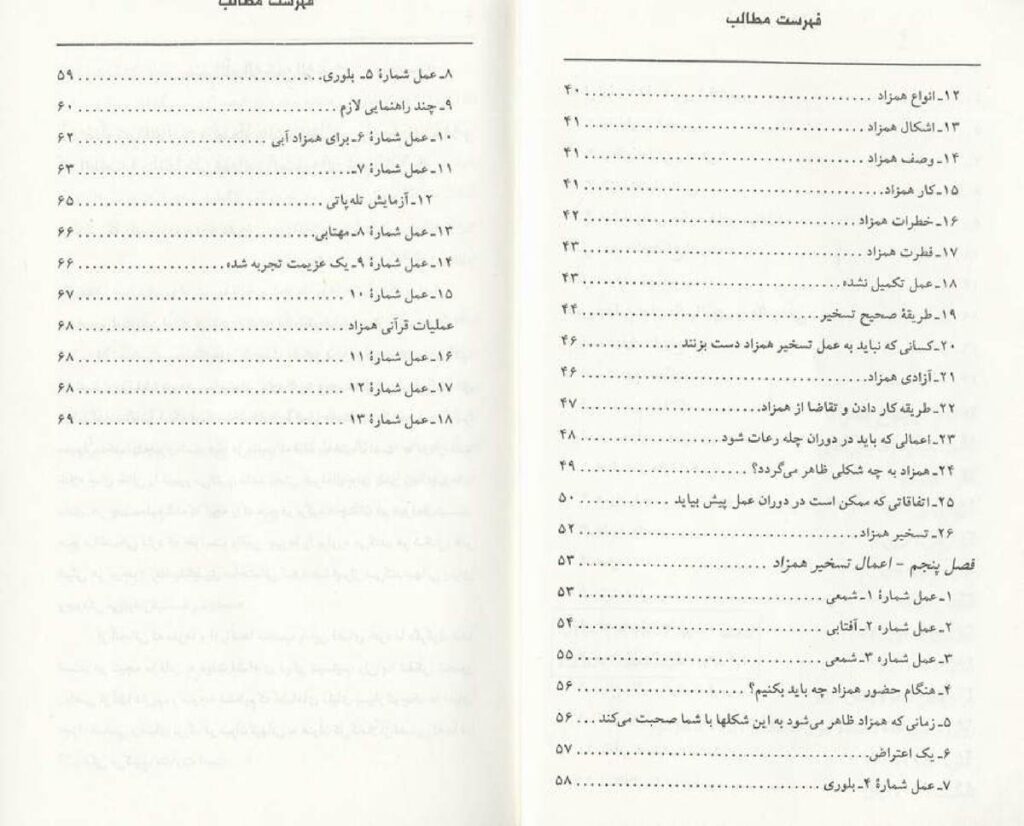 فهرست مطالب
۱۲ـ انواع همزاد ........................................ ۴۰
۱۳ـ اشکال همزاد ........................................ ۴۱
۱۴ـ وصف همزاد ........................................ ۴۱
۱۵ـ کار همزاد ........................................ ۴۱
۱۶ـ خطرات همزاد ........................................ ۴۲
۱۷ـ فطرت همزاد ........................................ ۴۳
۱۸ـ عمل تکمیل نشده ........................................ ۴۳
۱۹ـ طریقهٔ صحیح تسخیر ........................................ ۴۴
۲۰ـ کسانی که نباید به عمل تسخیر همزاد دست بزنند ............. ۴۶
۲۱ـ آزادی همزاد ........................................ ۴۶
۲۲ـ طریقه کار دادن و تقاضا از همزاد ......................... ۴۷
۲۳ـ اعمالی که باید در دوران چله رعات شود ................... ۴۸
۲۴ـ همزاد به چه شکلی ظاهر می‌گردد؟ ......................... ۴۹
۲۵ـ اتفاقاتی که ممکن است در دوران عمل پیش بیاید ............. ۵۰
۲۶ـ تسخیر همزاد ........................................ ۵۲
فصل پنجم - اعمال تسخیر همزاد ......................... ۵۳
۱ـ عمل شمارهٔ ۱ـ شمعی ........................................ ۵۳
۲ـ عمل شماره ۲ـ آفتابی ........................................ ۵۴
۳ـ عمل شماره ۳ـ شمعی ........................................ ۵۵
۴ـ هنگام حضور همزاد چه باید بکنیم؟ ......................... ۵۶
۵ـ زمانی که همزاد ظاهر می‌شود به این شکلها با شما صحبت می‌کند ... ۵۶
۶ـ یک اعتراض ........................................ ۵۷
۷ـ عمل شمارهٔ ۴ـ بلوری ........................................ ۵۸
فهرست مطالب
۸ـ عمل شمارهٔ ۵ـ بلوری ........................................ ۵۹
۹ـ چند راهنمایی لازم ........................................ ۶۰
۱۰ـ عمل شمارهٔ ۶ـ برای همزاد آبی ......................... ۶۲
۱۱ـ عمل شمارهٔ ۷ـ ........................................ ۶۳
۱۲ـ آزمایش تله‌پاتی ........................................ ۶۵
۱۳ـ عمل شمارهٔ ۸ـ مهتابی ........................................ ۶۶
۱۴ـ عمل شمارهٔ ۹ـ یک عزیمت تجربه شده ......................... ۶۶
۱۵ـ عمل شمارهٔ ۱۰ ........................................ ۶۷
عملیات قرآنی همزاد ........................................ ۶۸
۱۶ـ عمل شمارهٔ ۱۱ ........................................ ۶۸
۱۷ـ عمل شمارهٔ ۱۲ ........................................ ۶۸
۱۸ـ عمل شمارهٔ ۱۳ ........................................ ۶۹